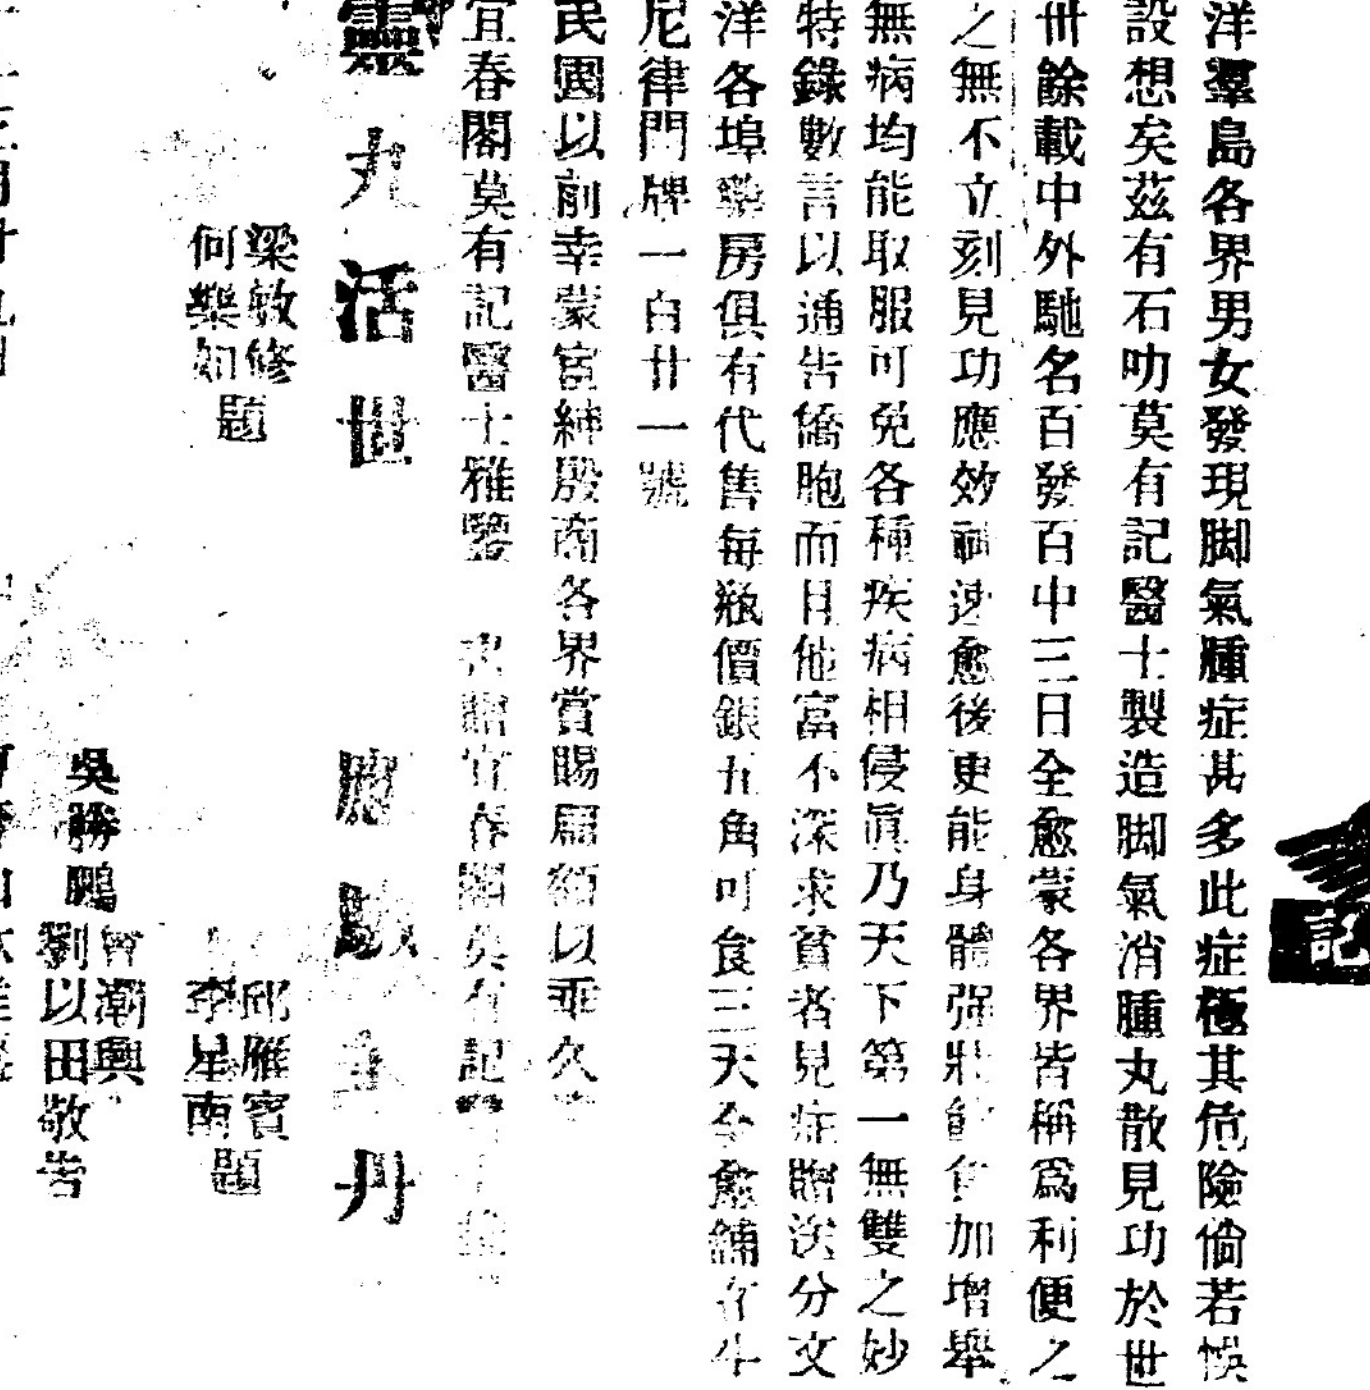 記
洋羣島各界男女發現脚氣腫症甚多此症極其危險倘若悞
設想矣茲有石叻莫有記醫士製造脚氣消腫丸散見功於世
卅餘載中外馳名百發百中三日全愈蒙各界皆稱爲利便之
之無不立刻見功應效神速愈後更能身體强壯飲食加增舉
無病均能取服可免各種疾病相侵眞乃天下第一無雙之妙
特錄數言以通告僑胞而目他富不深求貧者見症贈送分文
洋各埠藥房俱有代售每瓶價銀五角可食三天全愈鋪在牛
尼律門牌一百廿一號
民國以前幸蒙宦紳殷商各界賞賜匾額以垂久
宜春閣莫有記醫士雅鑒
宜春閣莫有記
靈丸活世
梁敏修
何樂如
題
丹
邱雁賓
李星南
題
吳勝鵬
曾潮興
劉以田敬告